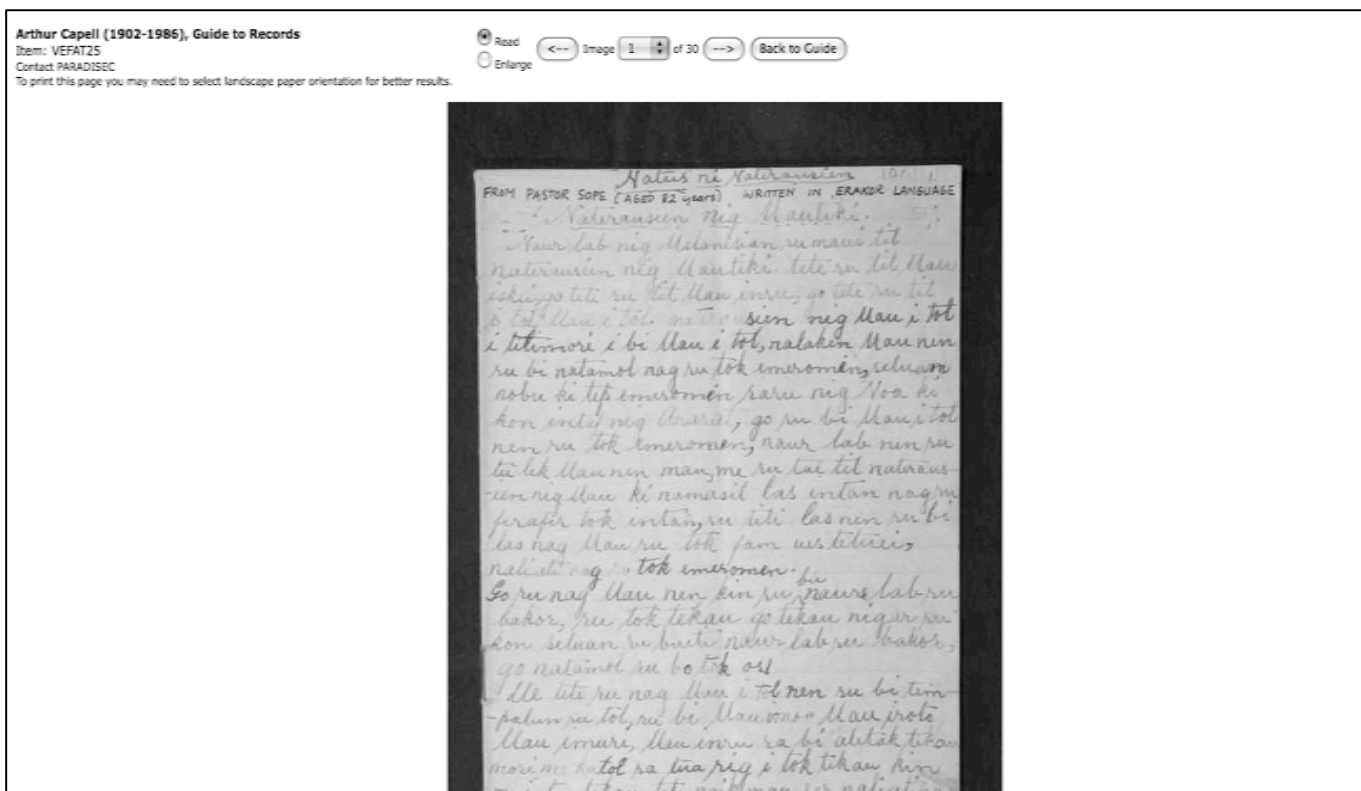 Arthur Capell (1902-1986), Guide to Records
Item: VEFAT25
Contact PARADISEC
To print this page you may need to select landscape paper orientation for better results.
Read
Enlarge
<-- Image 1 of 30 --> Back to Guide
Natus ni Naterausien
FROM PASTOR SOPE (AGED 82 years) WRITTEN IN ERAKOR LANGUAGE
Naterausien nig Mautiki.
Naur lab nig Melanisian ru maui til
naterausien nig Mautiki. tete ru til Mau
iskei, go tete ru til Mau inru, go tete ru til
i tol Mau i tol. naterausien nig Mau i tol
i titimori i bi Mau i tol, nalaken Mau nen
ru bi natamol nag ru tok emeromen, seluan
nobu ki tef emeromen raru nig Noa ki
kon inta nig Ararat, go ru bi Mau i tol
nen ru tok emeromen, naur lab nen ru
tii lek Mau nen mau, me ru tae til nateraus-
-ien nig Mau ki namasil las intan nag ru
firafir tok intan, ru titi las nen ru bi
las nag Mau ru tok fam
naliati nag ru tok emeromen.
Go ru nag Mau nen kin ru bu naure lab ru
bakor, ru tok tekau go tekau nigar
kon seluan ru naur lab ru bakor,
go natamol ru bo tok os
Me tete ru nag Mau i tol nen ru bi tem-
-palun ru tol, ru bi Mau imoa Mau iroto
Mau imuri, Mau inru ra bi alitak tekau
mori tol ra tua rig i tok tekau kin